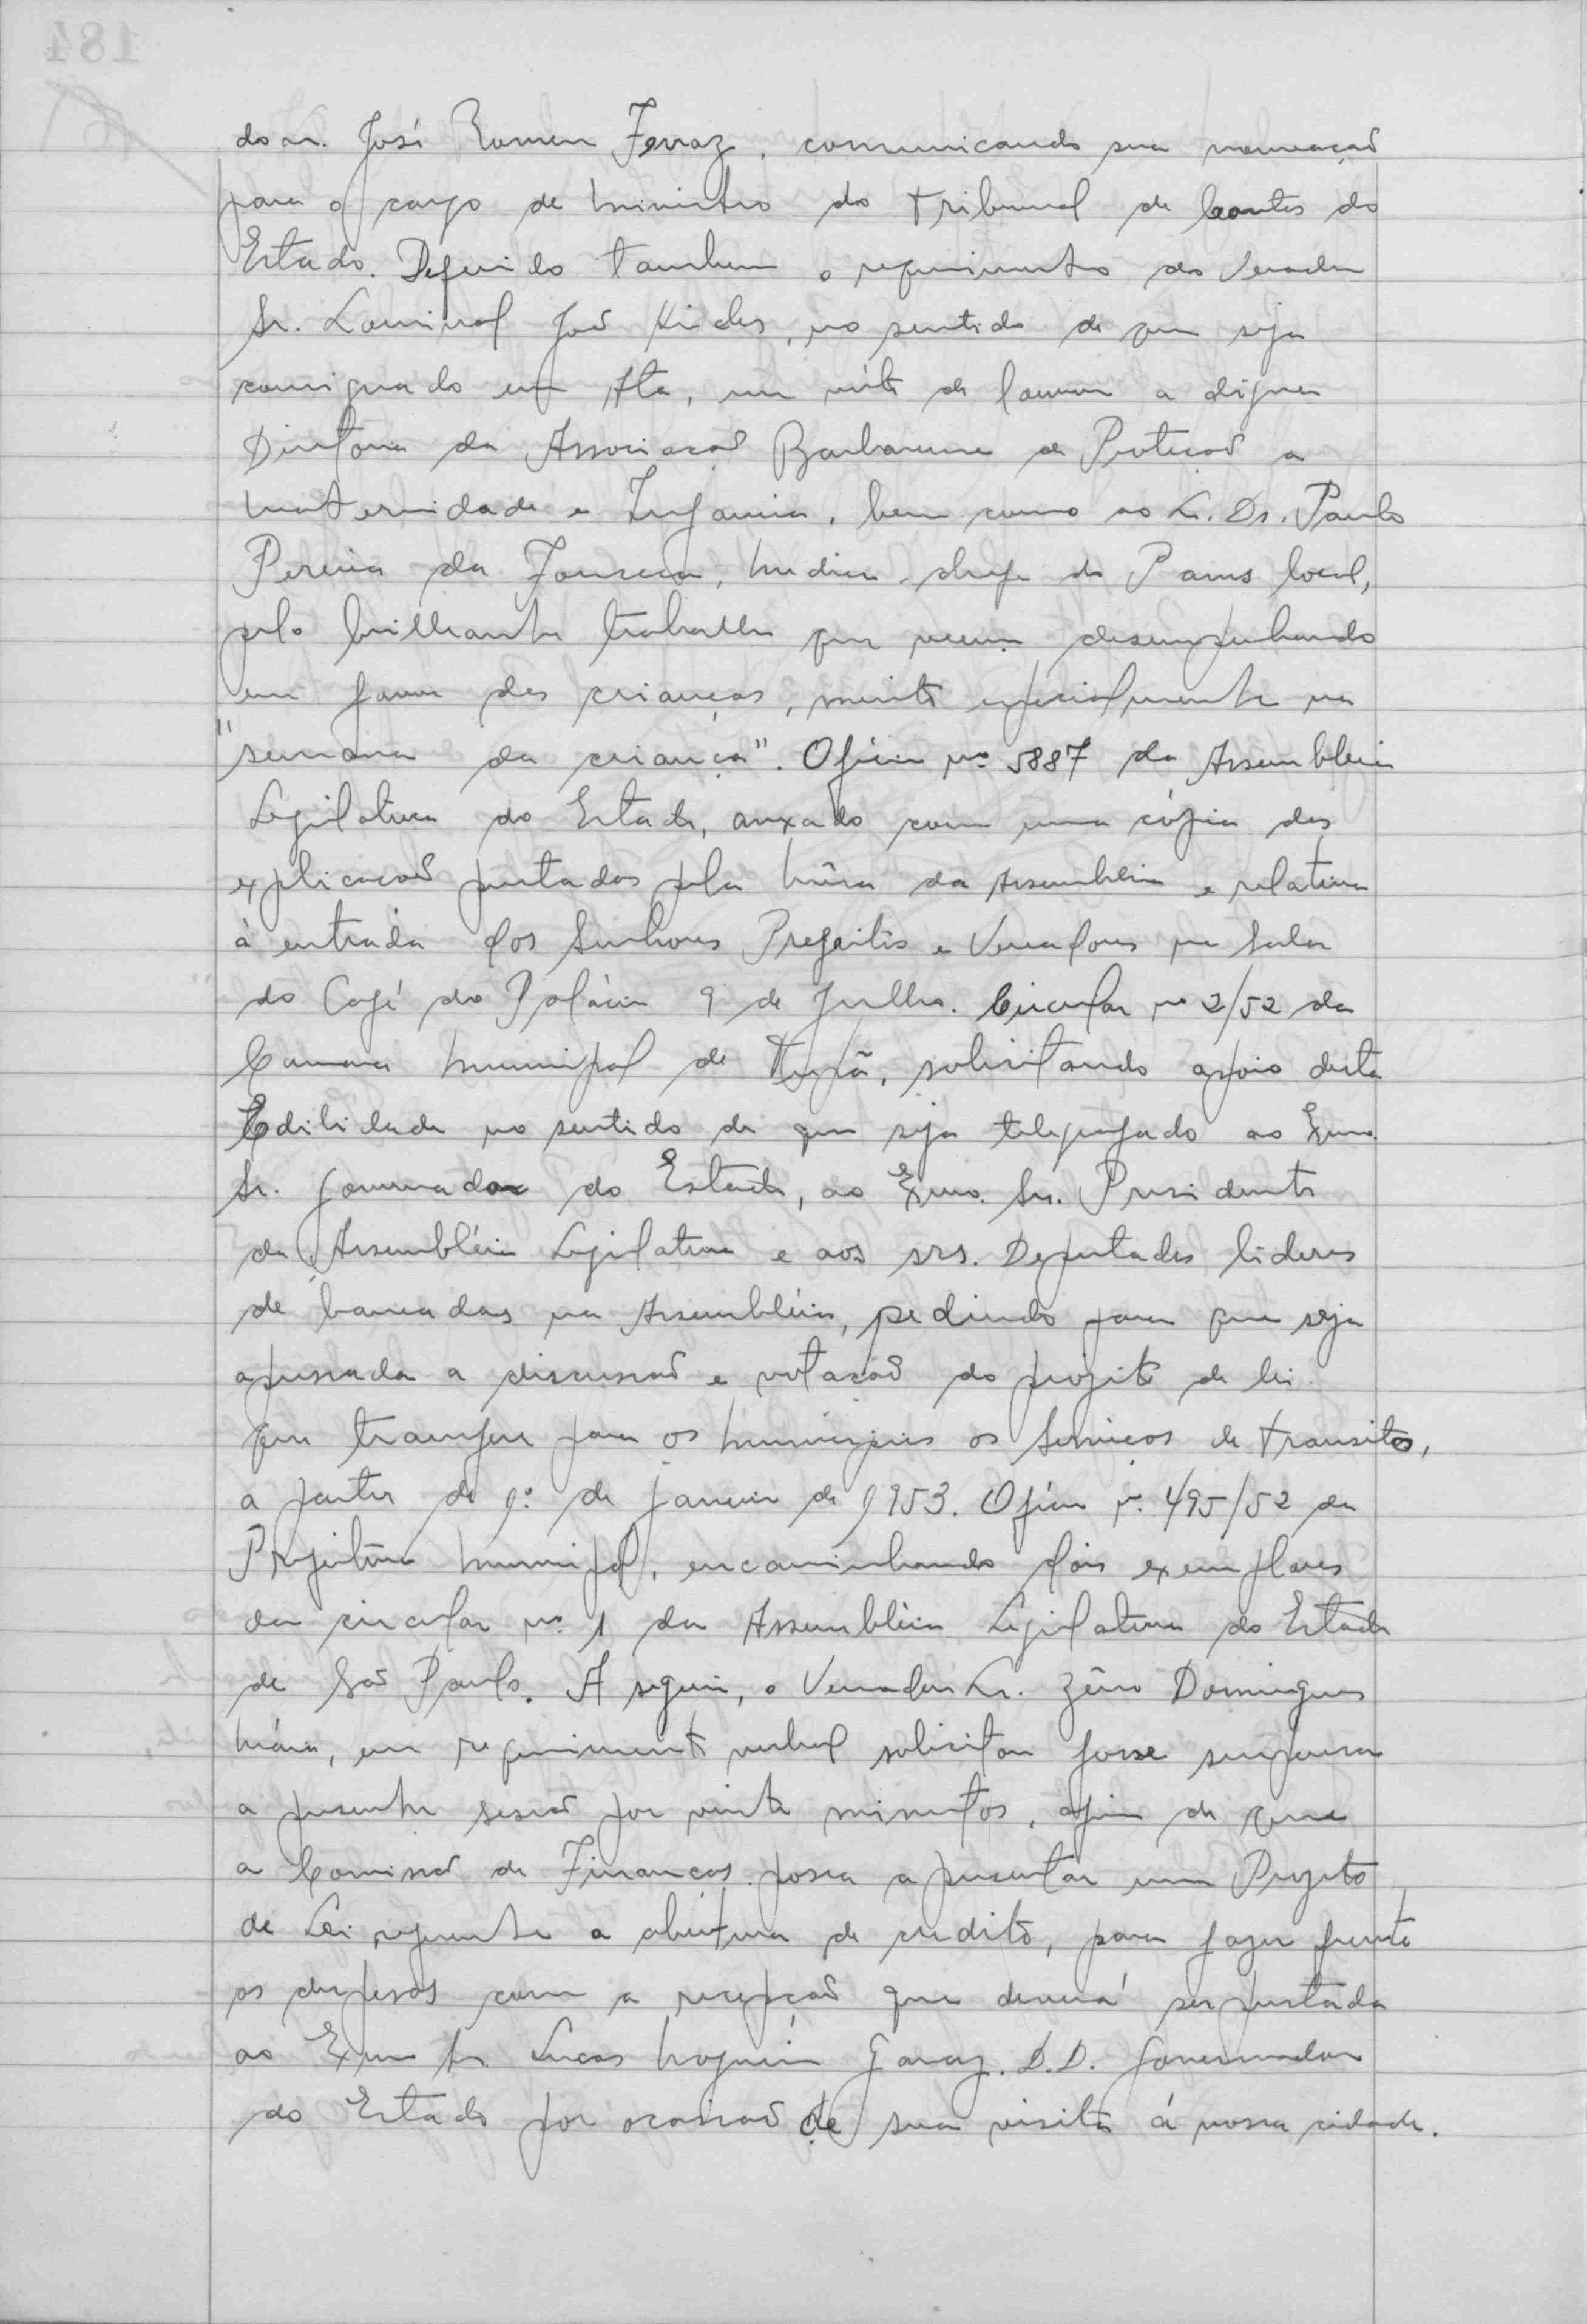 do sr. José Romeu Ferraz, comunicando sua nomeação
para o cargo de Ministro do Tribunal de Contas do
Estado. Deferido tambem o requerimento do Vereador
Sr. Lourival José, no sentido de que seja
consignado em Ata, um voto de louvor a digna
Diretoria da Associação Barbarense de Proteção a
Maternidade e Infancia, bem como ao Sr. Dr. Paulo
Pereira da Fonseca, Medico chefe do Pams local,
pelo brilhante trabalho que vem desempenhando
em favor das crianças, muito especialmente na
"semana da criança". Ofício nº 5887 da Assembleia
Legislativa do Estado, anexado com uma cópia das
explicação prestadas pela Mêsa da Assembléia e relativa
à entrada dos Senhores Prefeitos e Vereadores na Sala
do Café do Palácio 9 de Julho. Circular nº 2/52 da
Camara Municipal de Tupã, solicitando apoio desta
Edilidade no sentido de que seja telegrafado ao Exmo.
Sr. Governador do Estado, ao Exmo. Sr. Presidente
da Assembléia Legislativa e aos srs. Deputados lideres
de bancadas na Assembléia, pedindo para que seja
apressada a discussão e votação do projeto de lei
que transfere para os Municipios os Serviços de transitos,
a partir de 1º de janeiro de 1953. Oficio nº 495/52 da
Prefeitura Municipal, encaminhando dois exemplares
da circular nº 1 da Assembléia Legislativa do Estado
de São Paulo. A seguir, o Vereador Sr. Zêno Domingues
Máia, em requerimento verbal solicitou fosse suspensa
a presente sessão por vinte minutos, afim de que
a Comissão de Finanças possa apresentar um Projeto
de Lei referente a abertura de credito, para fazer frente
as despesas com a recepção que deverá ser prestada
ao Exmo Sr. Lucas Nogueira Garcez. D.D. Governador
do Estado por ocasião de sua visita á nossa cidade.